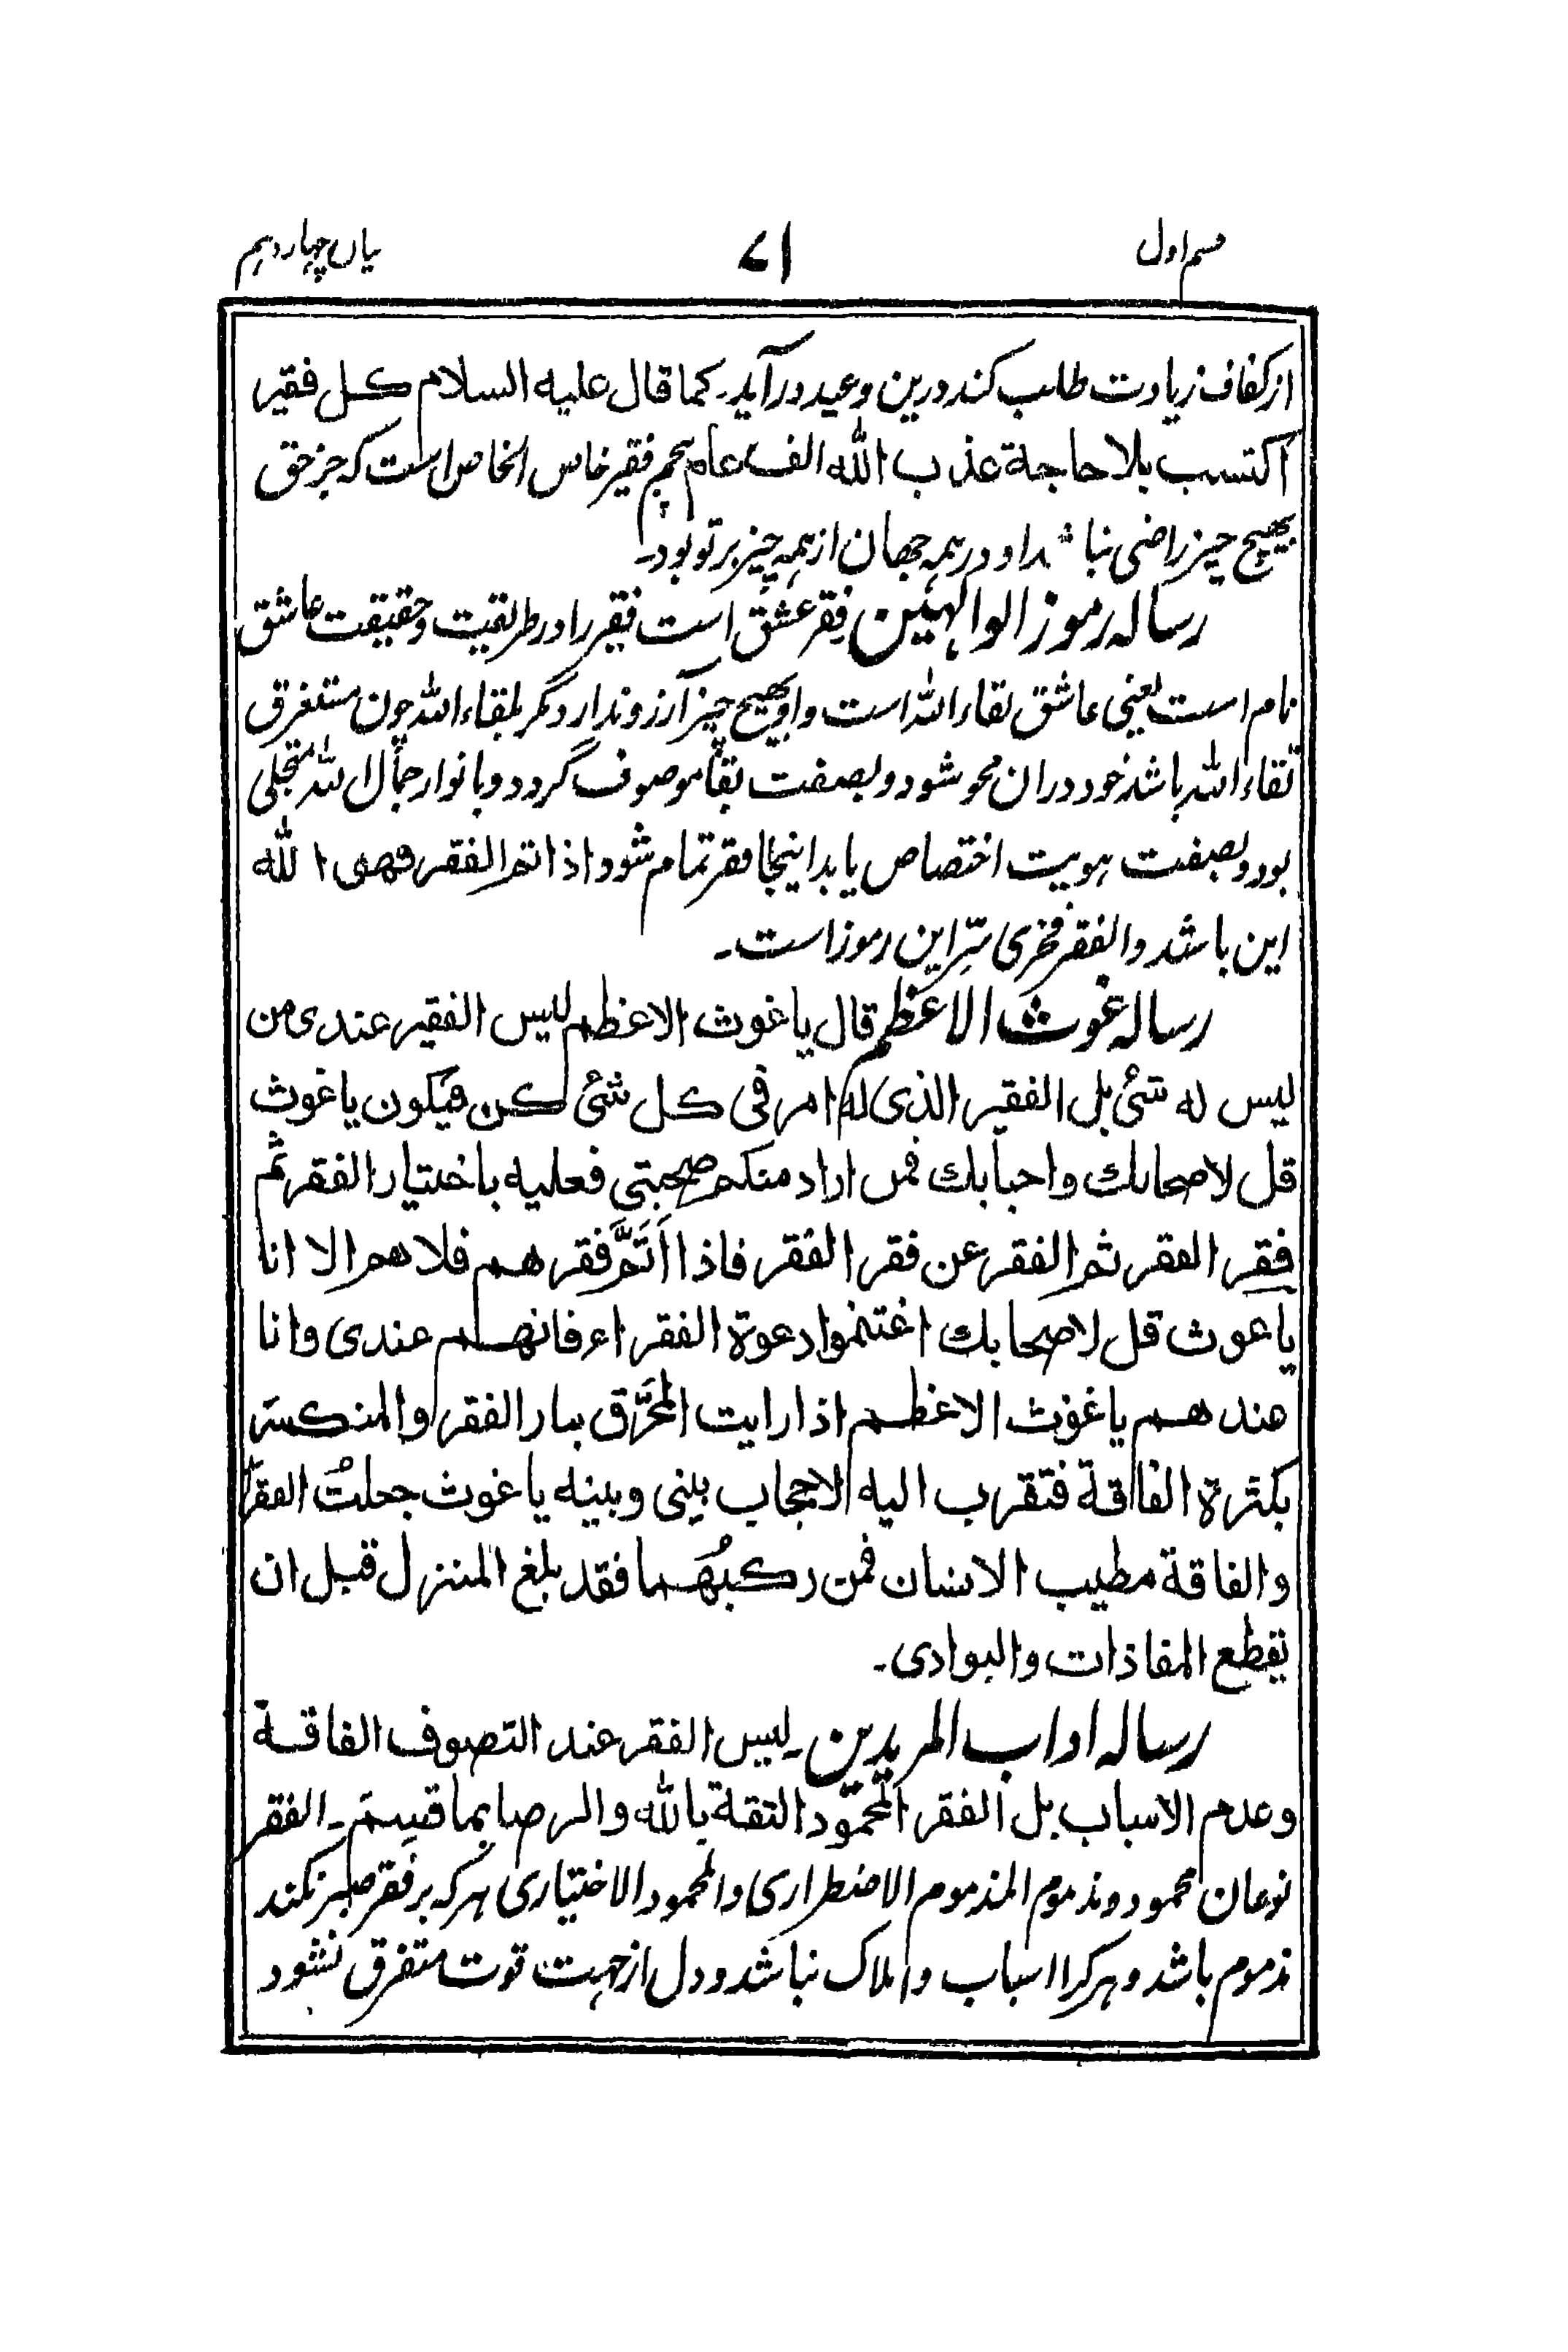 قسم اول
۷۱
بیان چہاردہم
از کفاف زیادت طلب کند درین وعید درآید۔ کما قال علیه السلام کل فقیر
اکتسب بلا حاجة عذب الله الف عام پنجم فقیر خاص الخاص است که جز حق
بهیچ چیز راضی نباشد او در ہمہ جهان از ہمہ چیز برتو بود۔
رساله رموز الوالہین فقر عشق است فقیر را در طریقیت و حقیقت عاشق
نام است یعنی عاشق لقاء الله است و او بهیچ چیز آرزو ندارد مگر بلقاء الله چون مستغرق
لقاء الله باشد خود دران محو شود و بصفت بقا موصوف گردد و بانوار جمال الله متجلی
بود و بصفت ہویت اختصاص یابد اینجا فقر تمام شود اذا اتم الفقر فهو الله
این باشد والفقر فخری سرّ این رموز است۔
رساله غوث الاعظم قال یا غوث الاعظم لیس الفقیر عندی من
لیس له شئ بل الفقیر الذی له امر فی کل شئ کن فیکون یا غوث
قل لاصحابك واحبابك فمن اراد منکم صحبتی فعلیه باختیار الفقر ثم
فقر الفقر ثم الفقر عن فقر الفقر فاذا اَتَمَّ فقرهم فلا هم الا انا
یا غوث قل لاصحابك اغتنموا دعوة الفقراء فانهم عندی وانا
عندهم یا غوث الاعظم اذا رایت المحَرَّق بنار الفقر والمنکسر
بکثرة الفاقة فتقرب الیه لا حجاب بینی وبینه یا غوث جعلتُ الفقر
والفاقة مطیب الانسان فمن رکبهُما فقد بلغ المنزل قبل ان
یقطع المفاذات والبوادی۔
رساله اداب المریدین۔ لیس الفقر عند التصوف الفاقة
وعدم الاسباب بل الفقر المحمود الثقة بالله والرضا بما قسم۔ الفقر
نوعان محمود و مذموم المذموم الاضطراری والمحمود الاختیاری ہر کہ بر فقر صبر نکند
مذموم باشد و ہر کرا اسباب و املاک نباشد و دل از جہت قوت متفرق نشود